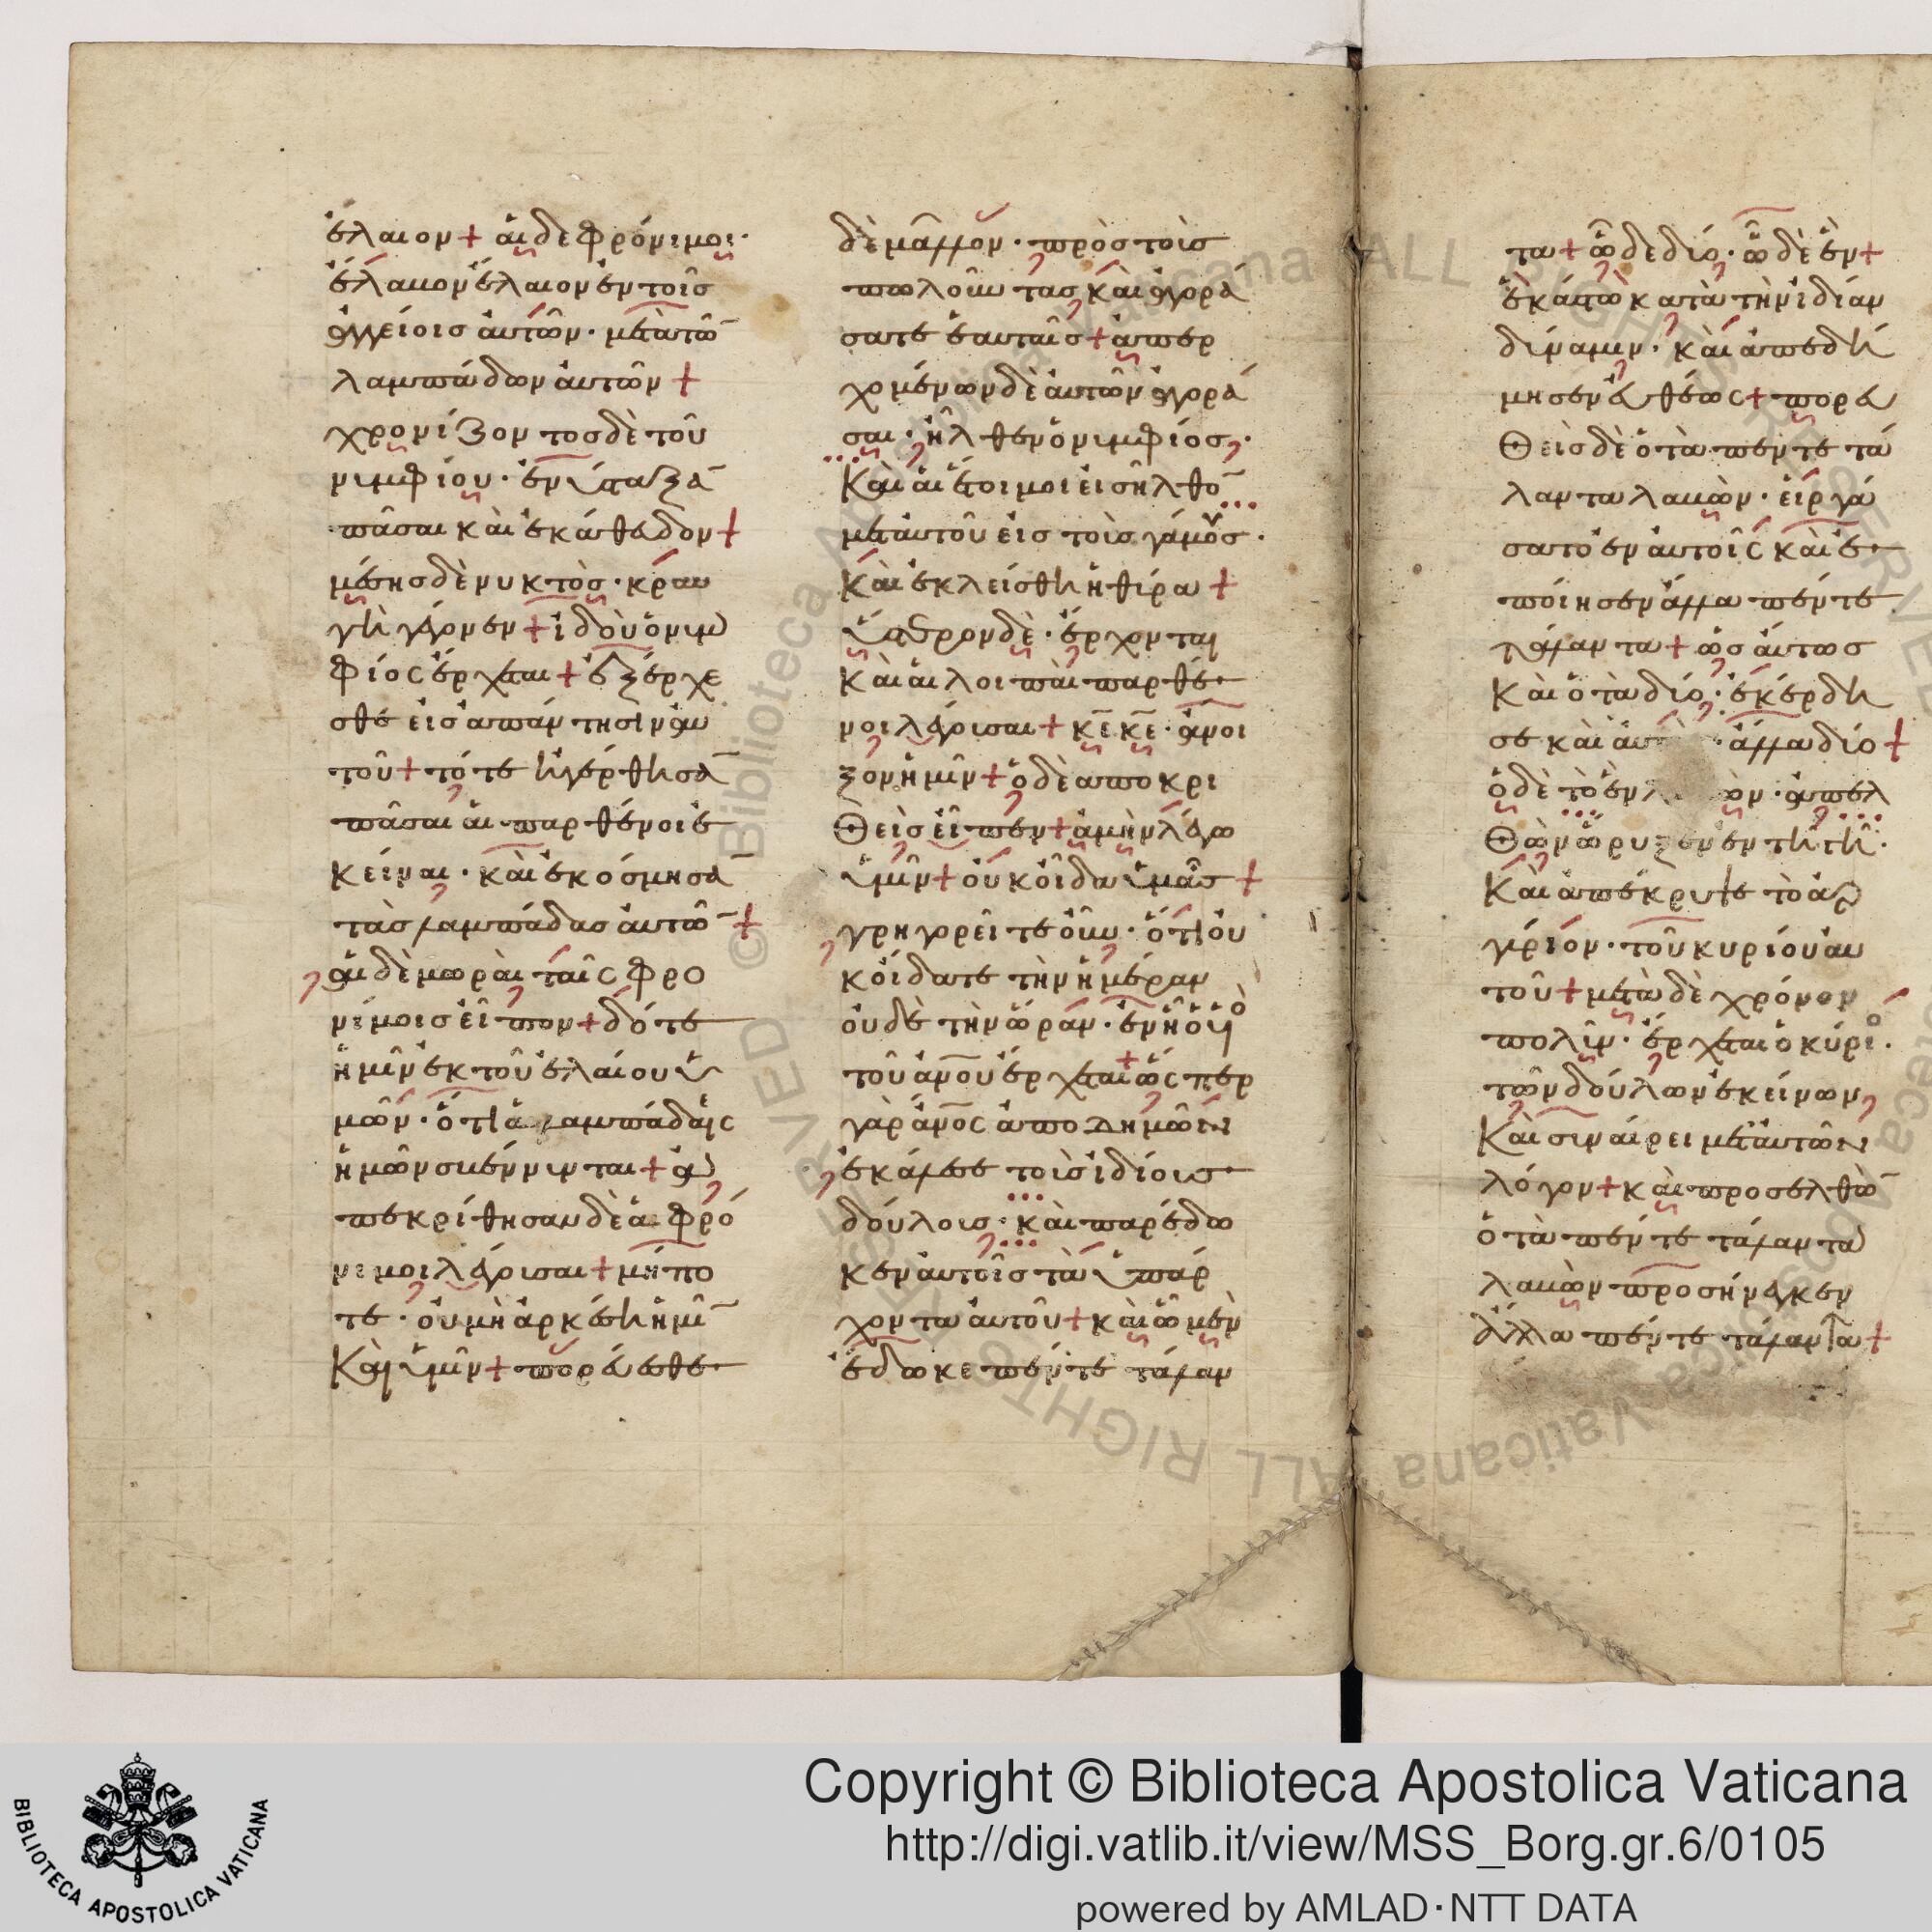 ἔλαιον + ἁι δὲ φρόνιμοι·
ἔλαμον ἔλαιον ἐν τοῖσ
ἀγγείοισ ἀυτῶν · μετὰ τῶ̅
λαμπάδων ἀυτῶν +
χρονίζοντοσ δὲ τοῦ
νιμφίου · ἐνύσταξα̅
πᾶσαι κὰι ἐκάθευδον +
μέσησ δὲ νυκτὸσ · κραυ
γὴ γέγονεν + ἰδοὺ ὁ νιμ
φίοσ ἔρχεται + ἐξέρχε
σθε εἰσ ἀπάντησιν ἀυ
τοῦ + τότε ἠγέρθησα̅
πᾶσαι ἁι παρθένοι ἐ
κείναι · κὰι ἐκόσμησα̅
τὰσ λαμπάδασ ἀυτῶ̅ +
ἁι δὲ μωρὰι ταῖσ φρο
νίμοισ εἶπον + δότε
ἡμῖν ἐκ τοῦ ἐλαίου ὑ
μῶν · ὅτι ἁι λαμπάδαισ
ἡμῶν σμέννινται + ἀ
πεκρίθησαν δὲ ἁι φρό
νιμοι λέγουσαι + μήπο
τε · ὀυ μὴ ἀρκέση ἡμῖ̅
Κὰι ὑμῖν + πορέυεσθε
δὲ μᾶλλον · πρὸσ τοὺσ
πωλοῦντασ κὰι ἀγορά
σατε ἑαυταῖσ + ἀπερ
χομένων δὲ ἀυτῶν ἀγορά
σαι · ἦλθεν ὁ νιμφίοσ ·
Κὰι ἁι ἕτοιμοι εἰσῆλθο̅
μετ ἀυτοῦ εἰσ τοὺσ γάμουσ ·
Κὰι ἐκλείσθη ἡ θίρα +
ὕστερον δὲ · ἔρχονται
Κὰι ἁι λοιπὰι παρθέ
νοι λέγουσαι + κ̅ε̅ κ̅ε̅ · ἄνοι
ξον ἡμῖν + ὁ δὲ αποκρι
Θεὶσ εἶπεν + ἀμὴν λέγω
ὑμῖν + ὀυκ ὀῖδα ὑμᾶσ +
γρηγορεῖτε ὀῦν · ὅτι ὀυ
κ ὀίδατε τὴν ἡμέραν
ὀυδὲ τὴν ὥραν · ἐν ἧ ὁ υἱὸ
τοῦ α̅ν̅ο̅υ̅ ἔρχεται + ὥσπερ
γὰρ α̅ν̅ο̅σ̅ ἀποδημῶν
ἐκάλεσε τοὺσ ἰδίουσ
δούλουσ · κὰι παρέδω
κεν ἀυτοῖσ τὰ ὑπάρ
χοντα ἀυτοῦ + κὰι ὧ μὲν
ἔδωκε πέντε τάλαν
τα + ὧ δὲ δίο · ὧ δὲ ἕν +
ἑκάστω κατὰ τὴν ἰδίαν
δίναμιν · κὰι ἀπεδή
μησεν ἐυθέωσ + πορευ
Θεὶσ δὲ ὁ τὰ πέντε τά
λαντα λαμὼν · εἰργά
σατο ἐν ἀυτοῖσ κὰι ἐ
ποίησεν ἄλλα πέντε
τάλαντα + ὡσάυτωσ
Κὰι ὁ τὰ δίο · ἐκέρδη
σε κὰι ἀυ · ἄλλα δίο +
ὁ δὲ τὸ ἓν · ἀπελ
Θὼν ὤρυξεν ἐν τῆ γῆ ·
Κὰι ἀπέκρυψε τὸ ἀρ
γίριον · τοῦ κυρίου ἀυ
τοῦ + μετὰ δὲ χρόνον
πολὶν · ἔρχεται ὁ κύριο ·
τῶν δούλων ἐκείνων
Κὰι σιναίρει μετ ἀυτῶν
λόγον + κὰι προσελθὼ̅
ὁ τὰ πέντε τάλαντα
λαμὼν προσήνεγκεν
ἄλλα πέντε τάλαντα +
Copyright © Biblioteca Apostolica Vaticana
http://digi.vatlib.it/view/MSS_Borg.gr.6/0105
powered by AMLAD·NTT DATA
BIBLIOTECA APOSTOLICA VATICANA